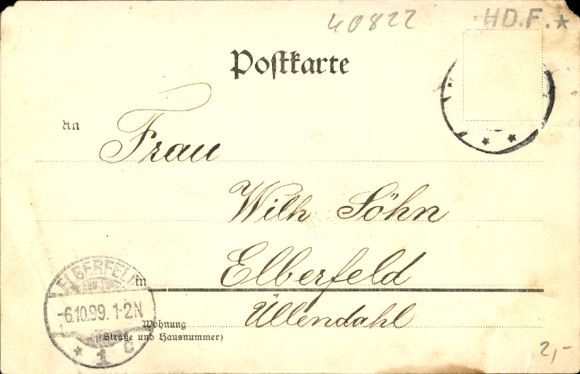 40822
HD.F. ★
Postkarte
An
Frau
Wilh Söhn
in
Elberfeld
Üllendahl
Wohnung
(Straße und Hausnummer)
ELBERFELD
-6.10.99. 1-2N
* 1 c
2,-